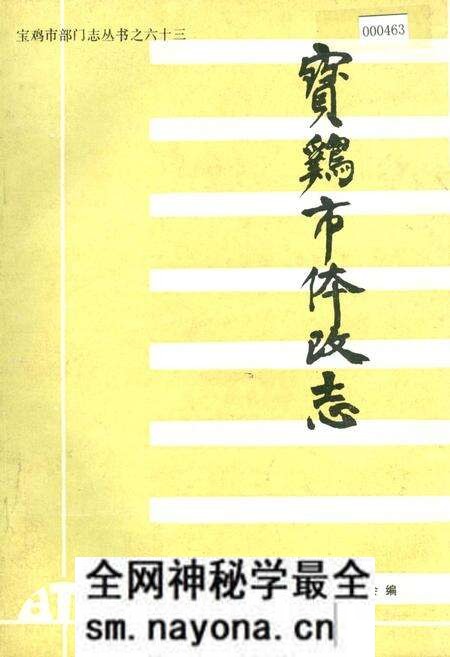 宝鸡市部门志丛书之六十三
000463
寳鷄市体改志
编
全网神秘学最全
sm.nayona.cn